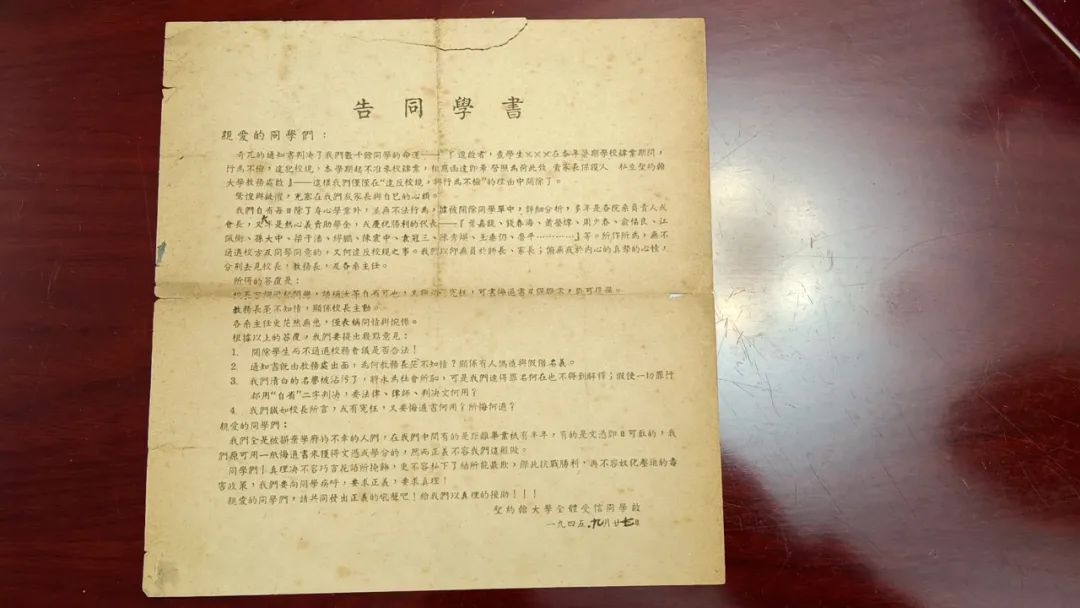 告同學書
親愛的同學們：
奇咒的通知書判决了我們數十餘同學的命運——『逕啟者，查學生×××在本年暑期學校肄業期間，
行為不檢，違犯校規，本學期起不准來校肄業，相應函達即希詧照為荷此致 貴家長保證人 私立聖約翰
大學教務處啟』——這樣我們僅僅在“違反校規，與行為不檢”的理由中開除了。
驚惶與 充塞在我們及家長與自己的心頭。
我們自省每日除了身心學業外，並無不法行為，據被開除同學單中，詳細分析，多年是各院系負責人或
會長，又 是熱心義賣助學金，或慶祝勝利的代表——『 春海、 周 春、俞佑良、江
佩衡、孫大中、梁于藩、 陳震中、袁冠三、陳秀煐、王泰仍、魯平…………』等。所作所為，無不
通過校方及同學同意的，又何違反校規之事。我們以仰無負於師長、家長；俯無疚於內心的真摯的心情，
分別去見校長，教務長，及各系主任。
所得的答覆是：
校長 自省可也，
教務長茫不知情，顯係校長主動。
各系主任更茫然無悉，僅表稱同情與惋惜。
根據以上的答覆，我們要提出幾點意見：
1. 開除學生而不通過校務會議是否合法！
2. 通知書既由教務處出面，為何教務長茫不知情？顯係有人偽造與假借名義。
3. 我們清白的名譽被沾污了，將永為社會所恥，可是我們連得罪名何在也不得到解釋；假使一切罪行
都用“自省”二字判决，要法律、律師、判决文何用？
4. 我們誠如校長所言，或有寃枉，又要悔過書何用？所悔何過？
親愛的同學們：
我們全是被摒棄學府的不幸的人們，在我們中間有的是距離畢業祇有半年，有的是文憑即日可取的，我
們原可用一紙悔過書來獲得文憑或學分的，然而正義不容我們這樣做。
同學們！真理决不容巧言花語所掩飾，更不容私下了結所能欺欺，際此抗戰勝利，再不容奴化壓迫的毒
害政策，我們要向同學疾呼，要求正義，要求真理！
親愛的同學們，請共同發出正義的吼聲吧！給我們以真理的援助！！！
聖約翰大學全體受信同學啟
一九四五.九月廿七日